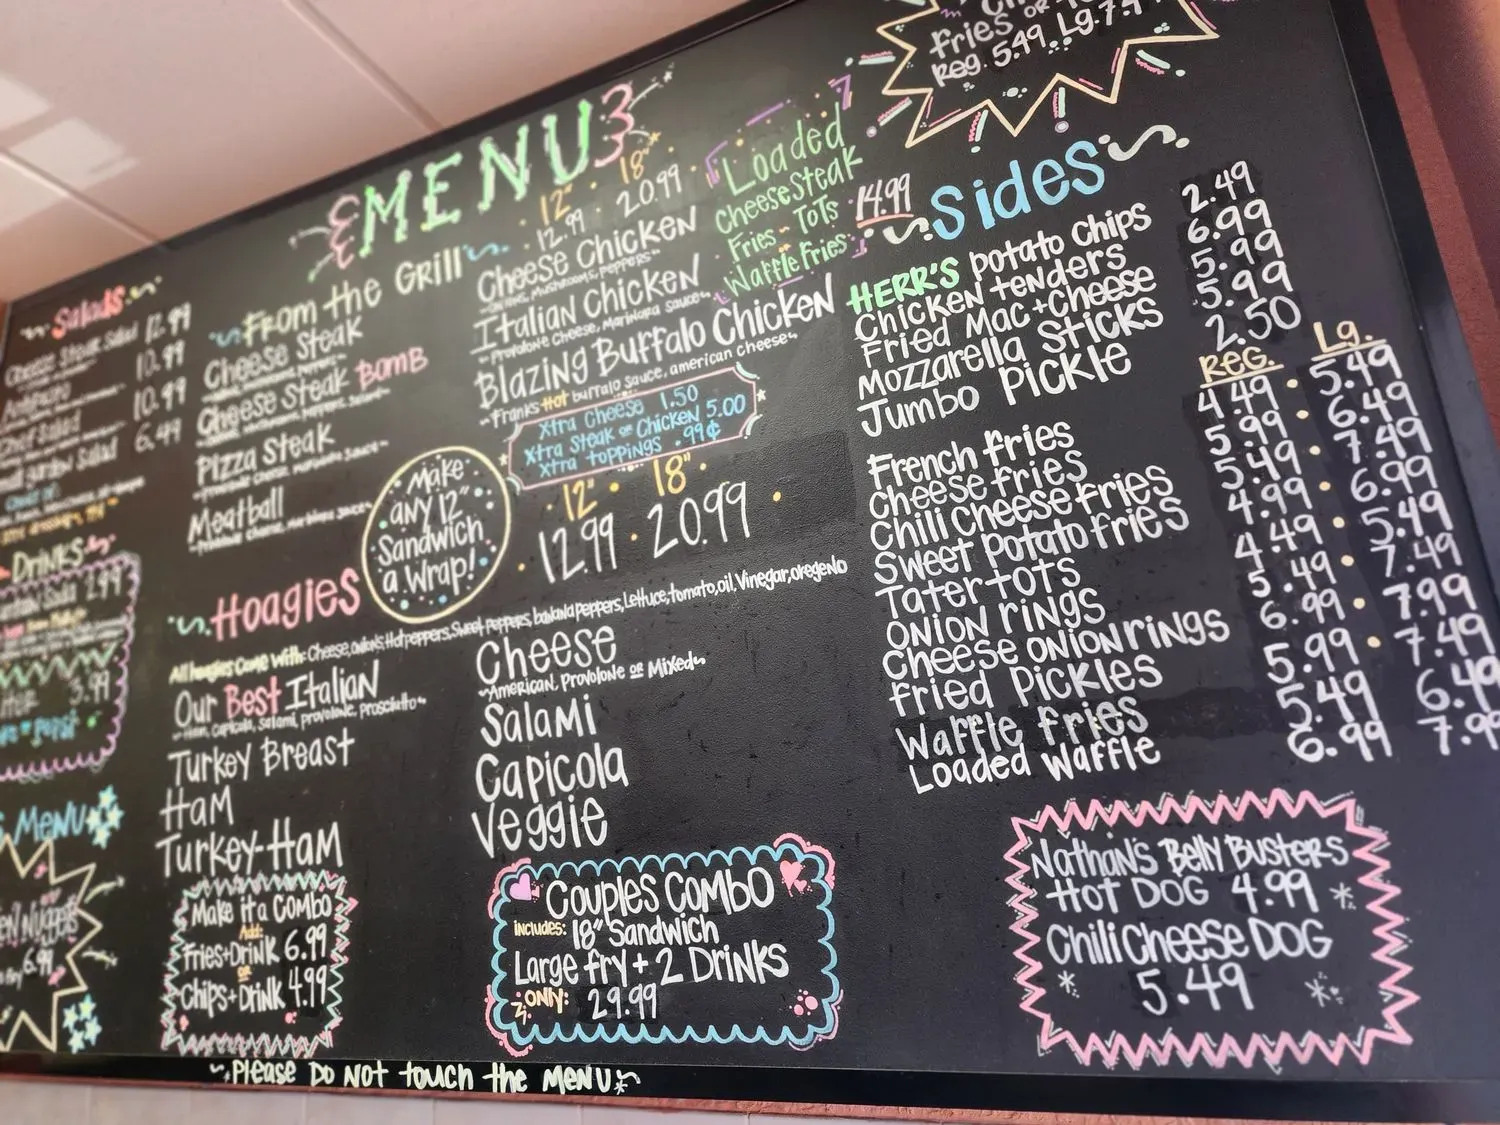 Fries or
Reg. 5.49 Lg. 7.49
MENU
Salads
Cheese Steak Salad 12.99
10.99
Chef Salad 10.99
Garden Salad 6.49
Drinks
2.99
3.99
Pepsi
Menu
Nuggets
6.99
From the Grill
12" 18"
12.99 20.99
Cheese Steak
Cheese Steak Bomb
Pizza Steak
Meatball
Cheese Chicken
~Onions, Mushrooms, Peppers~
Italian Chicken
~Provolone Cheese, Marinara Sauce~
Blazing Buffalo Chicken
~Franks Hot buffalo sauce, american cheese~
Xtra Cheese 1.50
Xtra Steak or Chicken 5.00
Xtra toppings .99¢
Make
any 12"
Sandwich
a Wrap!
12" 18"
12.99 20.99
Loaded
CheeseSteak
Fries - Tots
Waffle Fries
14.99
Hoagies
All hoagies Come With: Cheese, onions, Hot peppers, Sweet peppers, banana peppers, Lettuce, tomato, oil, Vinegar, oregeno
Our Best Italian
~Ham, Capicola, Salami, provolone, prosciutto~
Turkey Breast
Ham
Turkey-Ham
Cheese
~American, Provolone or Mixed~
Salami
Capicola
Veggie
Make it a Combo
Add:
Fries+Drink 6.99
or
Chips+Drink 4.99
Couples Combo
includes: 18" Sandwich
Large fry + 2 Drinks
only: 29.99
Sides
HERR'S potato Chips 2.49
Chicken tenders 6.99
Fried Mac+Cheese 5.99
Mozzarella Sticks 5.99
Jumbo Pickle 2.50
Reg. Lg.
French fries 4.49 5.49
Cheese fries 5.99 6.49
Chili Cheese Fries 5.49 7.49
Sweet Potato fries 4.99 6.99
Tater tots 4.49 5.49
Onion rings 5.49 7.49
Cheese onion rings 6.99 7.99
Fried Pickles 5.99 7.49
Waffle fries 5.49 6.49
Loaded Waffle 6.99 7.99
Nathan's Belly Busters
Hot Dog 4.99
Chili Cheese Dog
5.49
~Please Do Not touch the Menu~